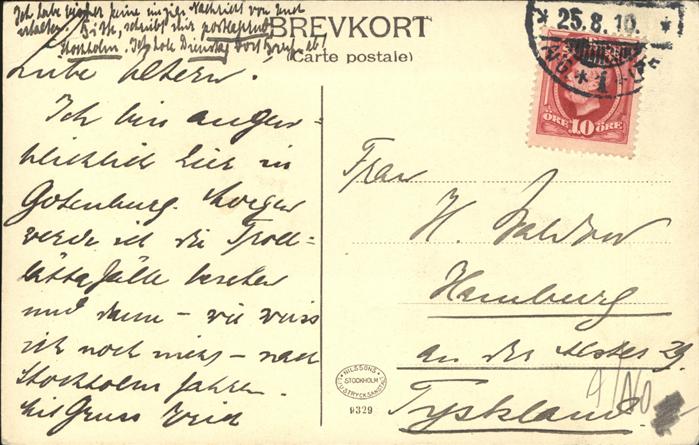 Ich habe bisher keine einzige Nachricht von Euch
erhalten. Bitte, schreibt mir postlagernd
Stockholm. Ich hole Dienstag dort Briefe ab!
BREVKORT
(Carte postale)
Liebe Eltern.
Ich bin augen-
blicklich hier in
Gotenburg. Morgen
werde ich die Troll-
hättafälle besehen
und dann – wie weiss
ich noch nicht – nach
Stockholm fahren.
Mit Gruss
* 25.8.10. *
* 1
ÖRE 10 ÖRE
Frau
H.
Hamburg
an der Alster 29
Tyskland.
NILSSONS
STOCKHOLM
LJUSTRYCKSANSTALT
9329